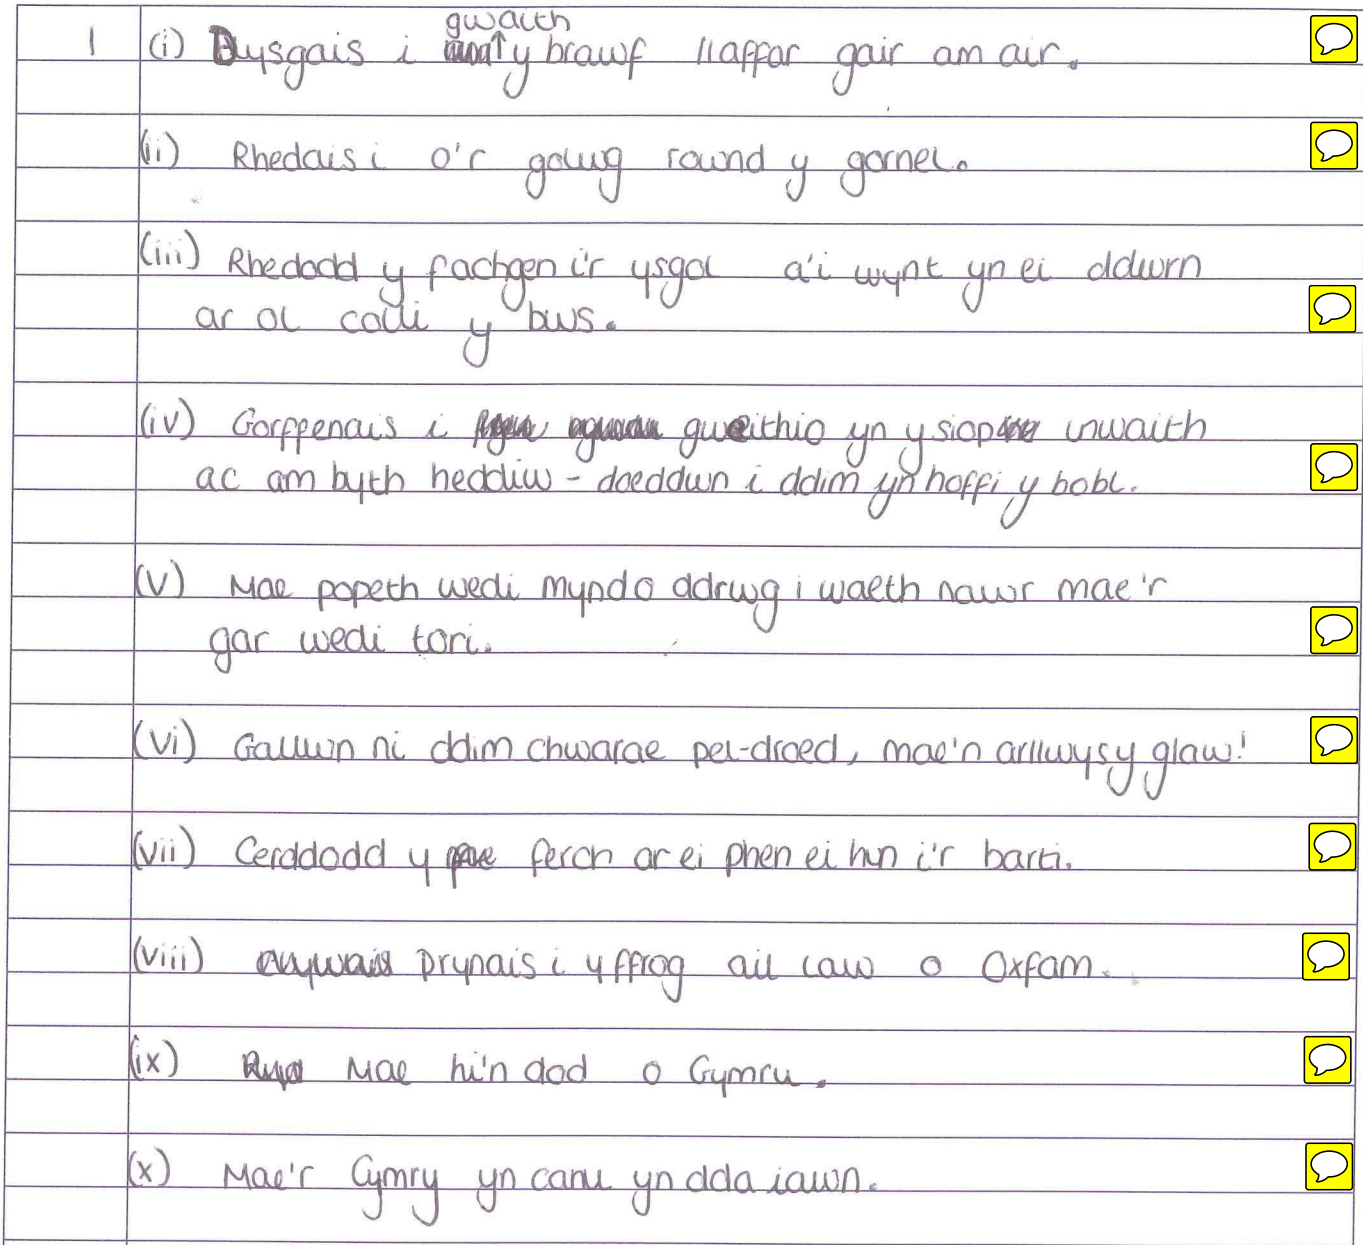 1 (i) Dysgais i gwaith y brawf llaffar gair am air.
(ii) Rhedais i o'r golwg round y gornel.
(iii) Rhedodd y fachgen i'r ysgol a'i wynt yn ei ddwrn
ar ol colli y bws.
(iv) Gorffenais i gweithio yn y siop unwaith
ac am byth heddiw - doeddwn i ddim yn hoffi y bobl.
(v) Mae popeth wedi mynd o ddrwg i waeth nawr mae'r
gar wedi tori.
(vi) Gallwn ni ddim chwarae pel-droed, mae'n arllwys y glaw!
(vii) Cerddodd y ferch ar ei phen ei hun i'r barti.
(viii) Prynais i y ffrog ail law o Oxfam.
(ix) Mae hi'n dod o Gymru.
(x) Mae'r Cymry yn canu yn dda iawn.